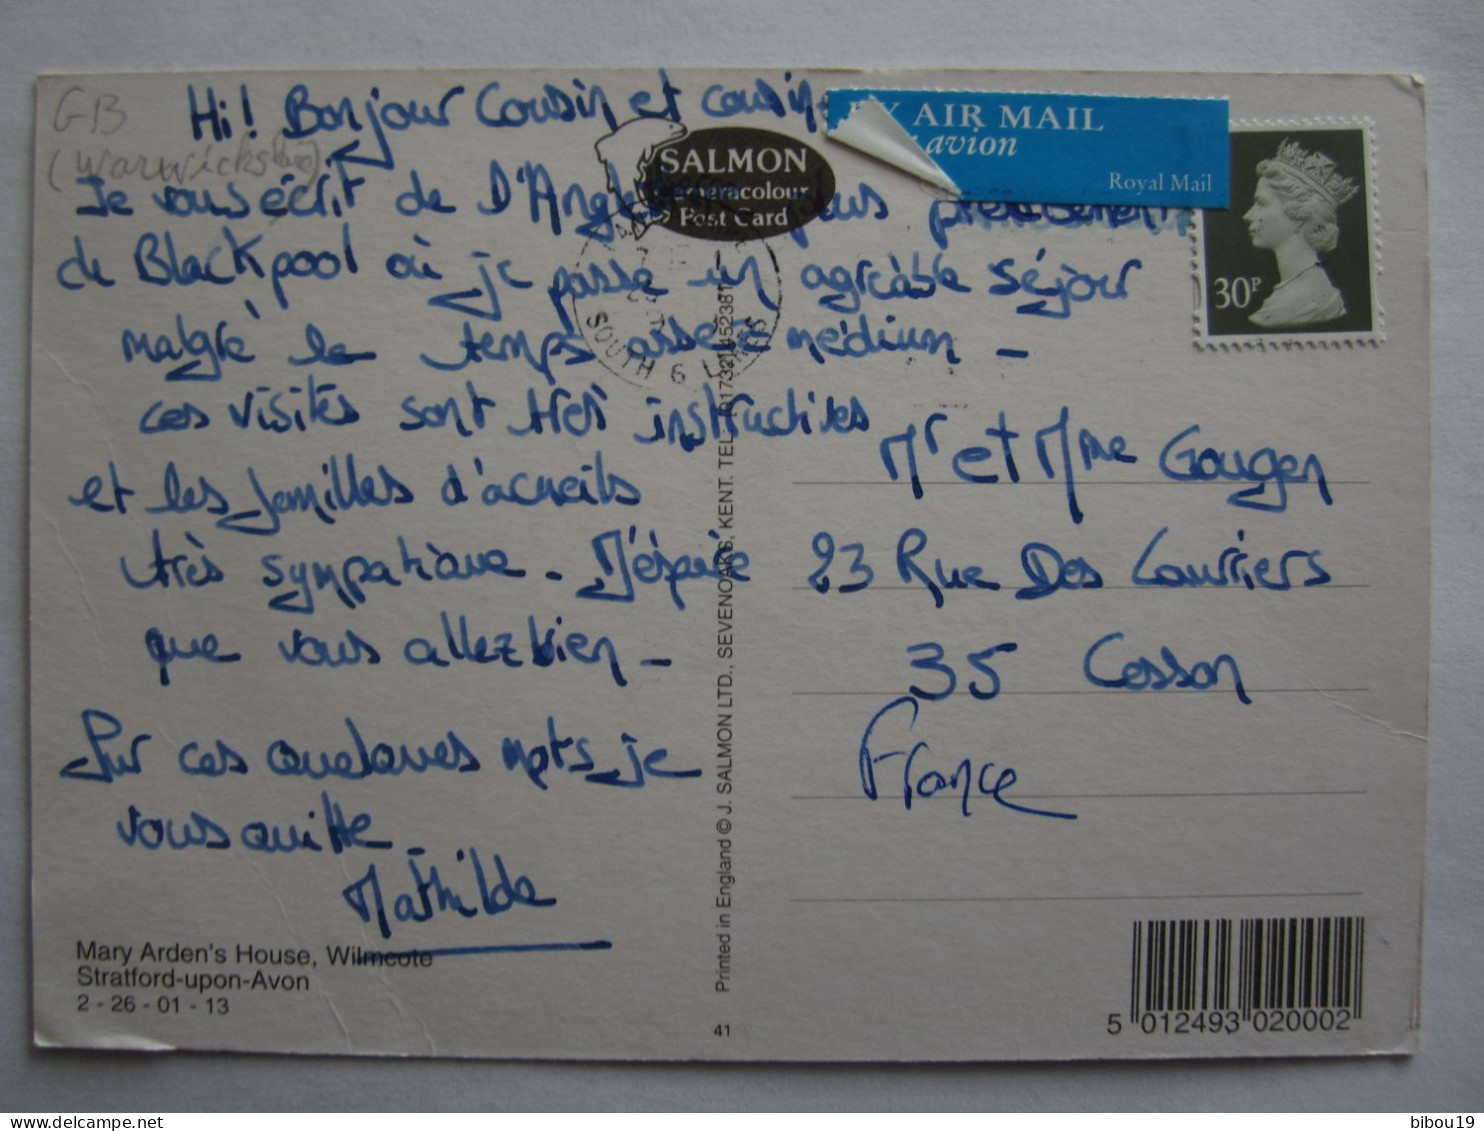 GB
(Warwickshire)
Hi! Bonjour Cousin et cousin
Je vous écrit de D'Angle plus précisément
de Blackpool où je passe un agréable séjour
malgré le temps assez médium -
ces visites sont très instructives
et les familles d'acueils
très sympatique - J'éspère
que vous allez bien -
Sur ces quelques mots, je
vous quitte -
Mathilde
Mary Arden's House, Wilmcote
Stratford-upon-Avon
2 - 26 - 01 - 13
SALMON
Cameracolour
Post Card
SOUTH 6 LANCS
Printed in England © J. SALMON LTD., SEVENOAKS, KENT. TEL. 01732 452381
41
BY AIR MAIL
avion
Royal Mail
30P
Mr et Mme Gougen
23 Rue Des Lauriers
35 Cesson
France
5 012493 020002
bibou19